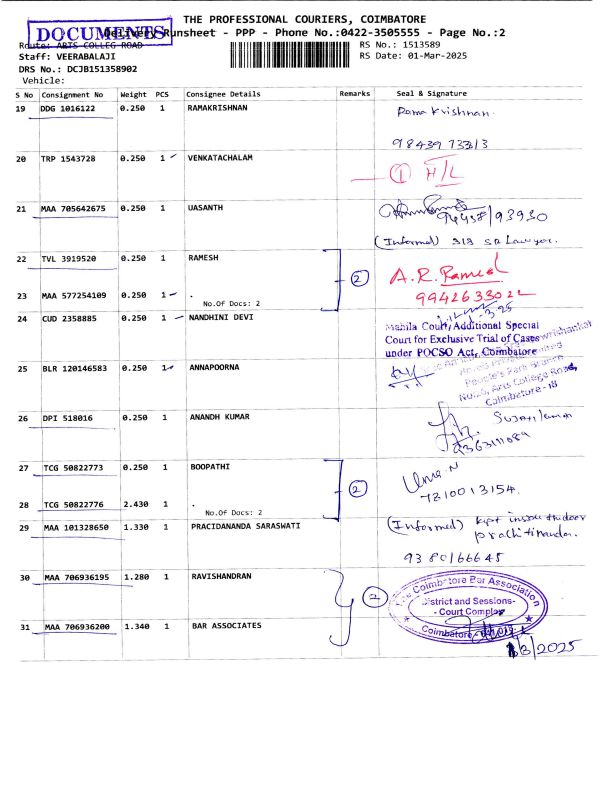 THE PROFESSIONAL COURIERS, COIMBATORE
DOCUMENTS
Delivery Runsheet - PPP - Phone No.:0422-3505555 - Page No.:2
Route: ARTS COLLEG ROAD
RS No.: 1513589
Staff: VEERABALAJI
RS Date: 01-Mar-2025
DRS No.: DCJB151358902
Vehicle:
S No Consignment No Weight PCS Consignee Details Remarks Seal & Signature
19 DDG 1016122 0.250 1 RAMAKRISHNAN Rama Krishnan
20 TRP 1543728 0.250 1 VENKATACHALAM 1 H/L
21 MAA 705642675 0.250 1 UASANTH
(Informed)
22 TVL 3919520 0.250 1 RAMESH 2 A.R.
23 MAA 577254109 0.250 1 . 9942633022
No.Of Docs: 2
24 CUD 2358885 0.250 1 NANDHINI DEVI
Mahila Court/Additional Special
Court for Exclusive Trial of Cases
under POCSO Act, Coimbatore
25 BLR 120146583 0.250 1 ANNAPOORNA
People's Park Branch
Arts College Road,
Coimbatore - 18
26 DPI 518016 0.250 1 ANANDH KUMAR
27 TCG 50822773 0.250 1 BOOPATHI 2 Uma.N
7810013154
28 TCG 50822776 2.430 1 .
No.Of Docs: 2
29 MAA 101328650 1.330 1 PRACIDANANDA SARASWATI (Informed) kept
9380166645
30 MAA 706936195 1.280 1 RAVISHANDRAN 2
The Coimbatore Bar Association
District and Sessions-
- Court Complex
Coimbatore
31 MAA 706936200 1.340 1 BAR ASSOCIATES
1/3/2025